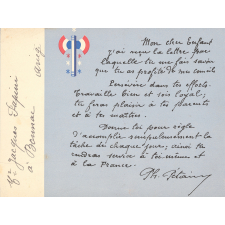 Mon cher Enfant
j'ai reçu la lettre par
laquelle tu me fais savoir
que tu as profité de mes conseils
Persévère dans tes efforts.
Travaille bien et sois loyal;
tu feras plaisir à tes parents
et à tes maîtres.
Donne toi pour règle
d'accomplir scrupuleusement la
tâche de chaque jour; ainsi tu
rendras service à toi-même et
à la France.
Ph. Pétain
Jacques
à Bonnac